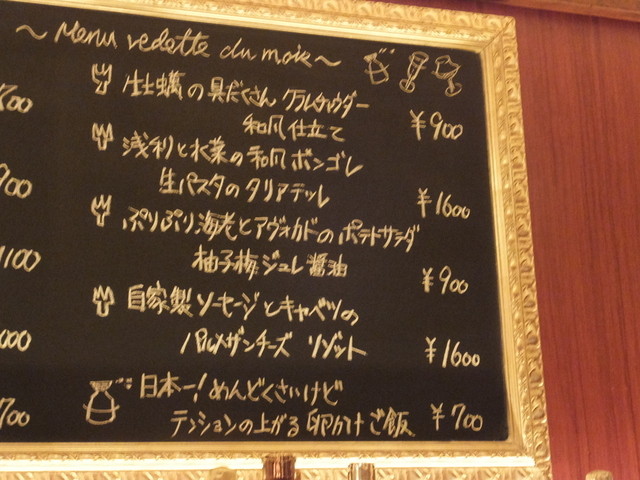 ~Menu vedette du mois~
生牡蠣の具だくさん クラムチャウダー
和風仕立て ¥900
浅利と水菜の和風ボンゴレ
生パスタのタリアテッレ ¥1600
ぷりぷり海老とアヴォカドのポテトサラダ
柚子梅ジュレ醤油 ¥900
自家製ソーセージとキャベツの
パルメザンチーズ リゾット ¥1600
日本一!めんどくさいけど
テンションの上がる卵かけご飯 ¥700
900
1100
000
700